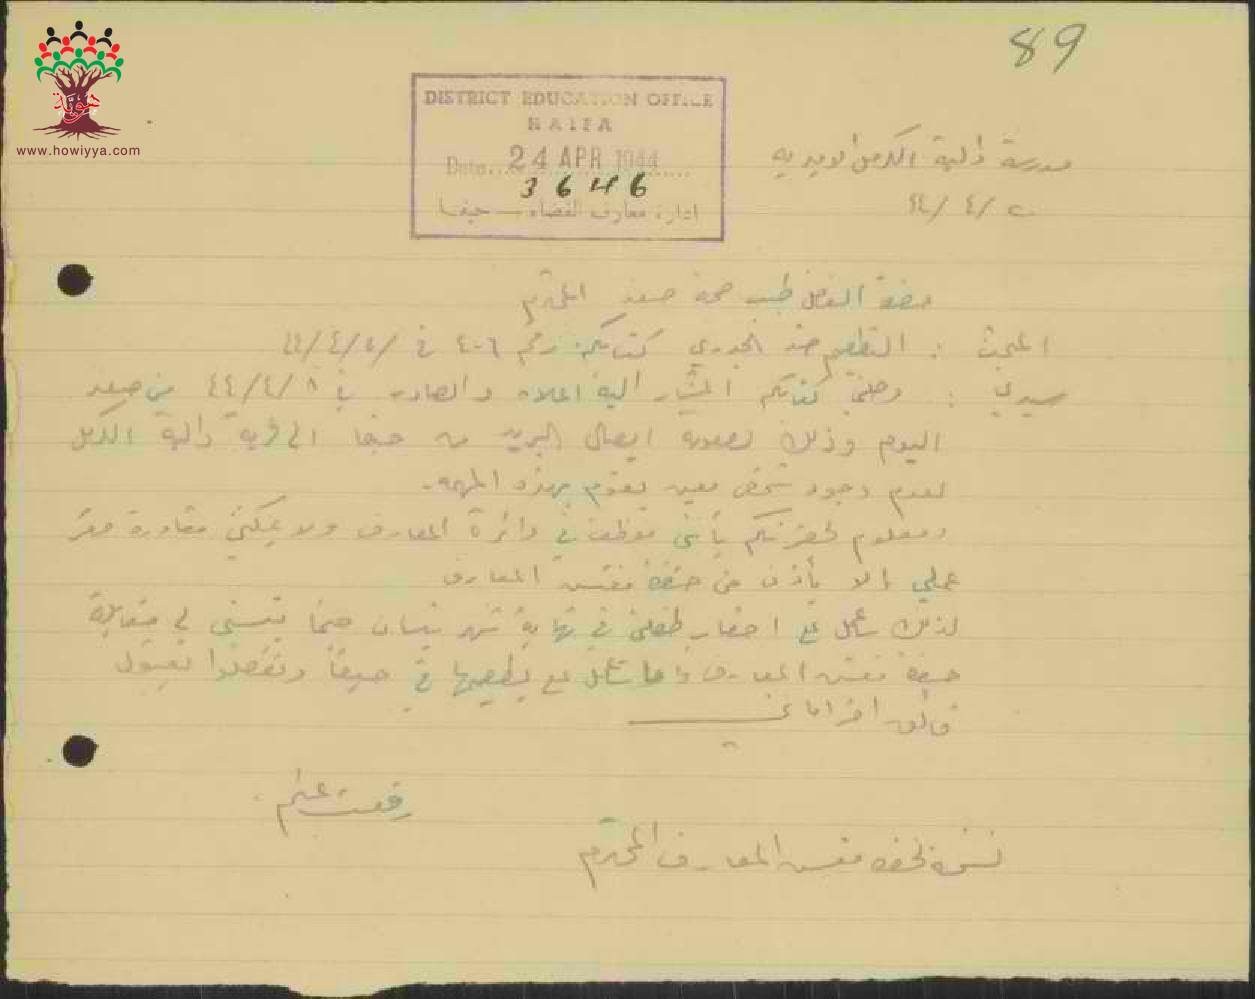 89
هوية
www.howiyya.com
DISTRICT EDUCATION OFFICE
HAIFA
Date... 24 APR 1944
3646
ادارة معارف القضاء — حيفا
مدرسة دالية الكرمل الاميرية
٤٤/٤/٢٠
حضرة الفاضل طبيب صحة صفد المحترم
المبحث : التطعيم ضد الجدري كتابكم رقم ٤٠٦ في
سيدي : وصلني كتابكم المشار اليه اعلاه والصادر في ٤٤/٤/٨ من صفد
اليوم وذلك لصعوبة ايصال البريد من حيفا الى قرية دالية الكرمل
لعدم وجود شخص معين يقوم بهذه المهمة.
ومعلوم لحضرتكم بأنني موظف في دائرة المعارف ولا يمكنني مغادرة مقر
عملي إلا بأذن من حضرة مفتش المعارف
لذلك سأعمل على احضار طفلتي في نهاية شهر نيسان حينما يتسنى لي مقابلة
حضرة مفتش المعارف على تطعيمها في حيفا وتفضلوا بقبول
فائق احتراماتي
رفعت
نسخة لحضرة مفتش المعارف المحترم